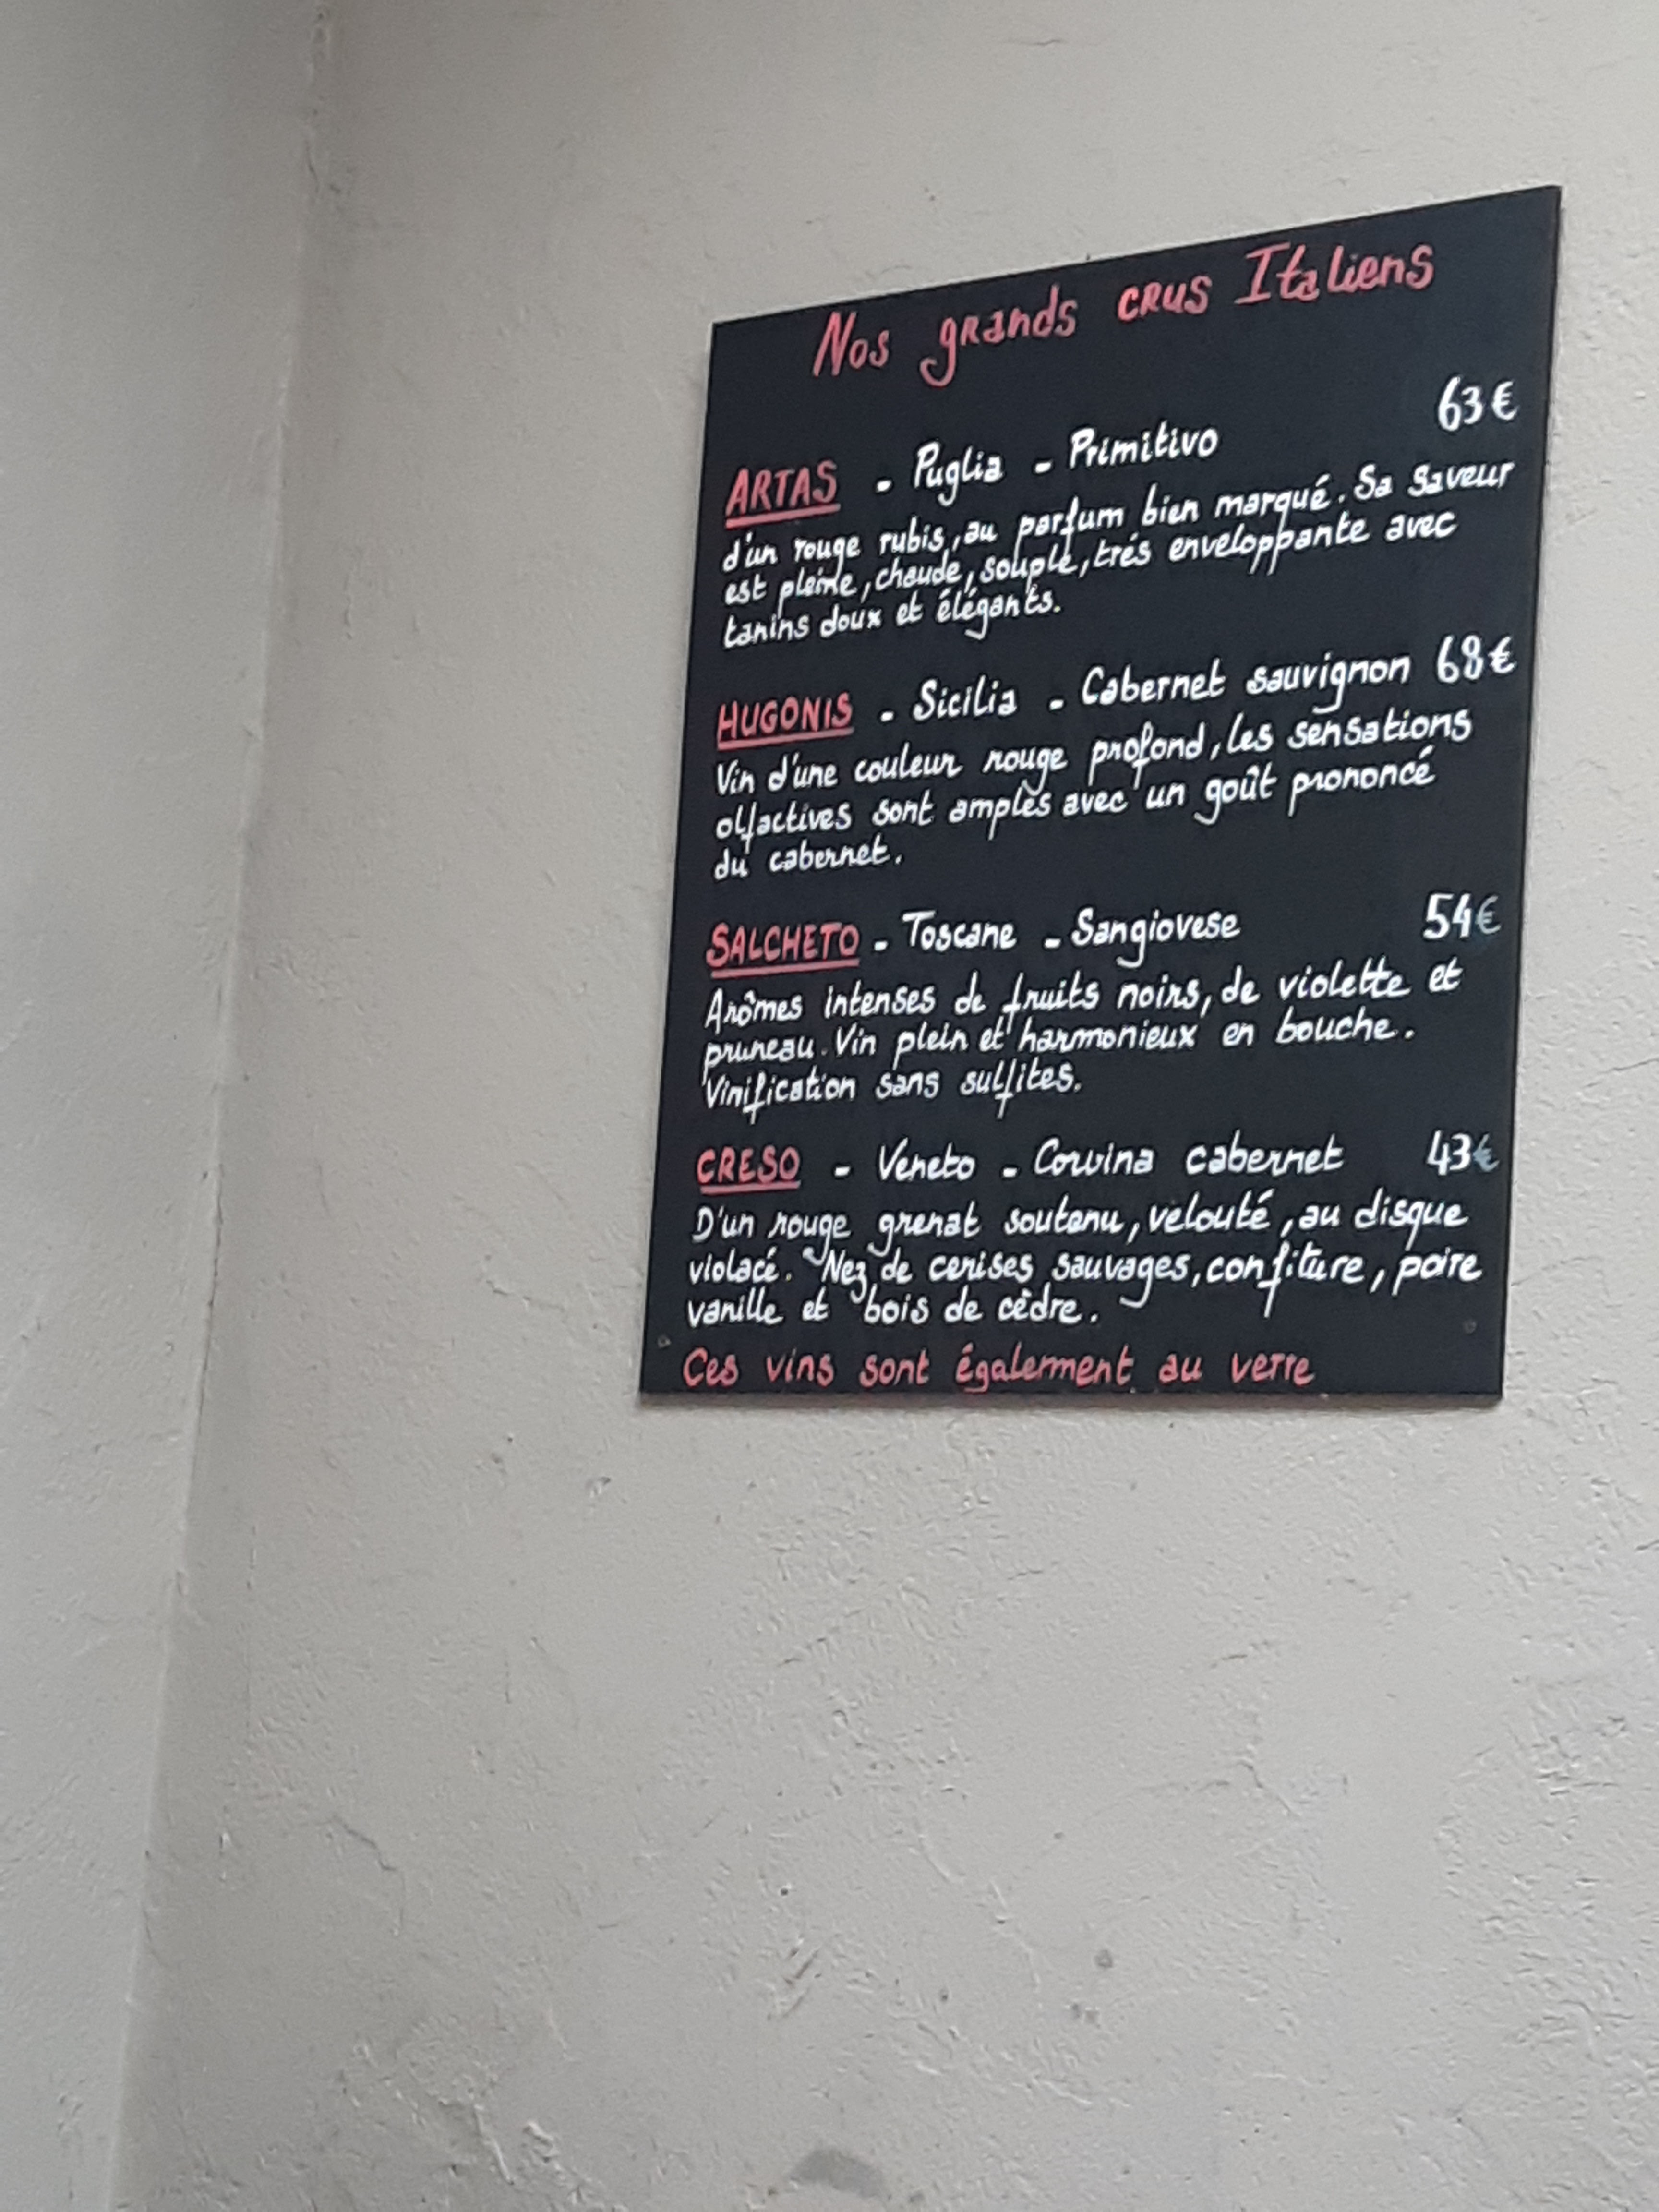 Nos grands crus Italiens
ARTAS - Puglia - Primitivo 63€
d'un rouge rubis, au parfum bien marqué. Sa saveur
est pleine, chaude, souple, trés enveloppante avec
tanins doux et élégants.
HUGONIS - Sicilia - Cabernet sauvignon 68€
Vin d'une couleur rouge profond, les sensations
olfactives sont amples avec un goût prononcé
du cabernet.
SALCHETO - Toscane - Sangiovese 54€
Arômes intenses de fruits noirs, de violette et
pruneau. Vin plein et harmonieux en bouche.
Vinification sans sulfites.
CRESO - Veneto - Corvina cabernet 43€
D'un rouge grenat soutenu, velouté, au disque
violacé. Nez de cerises sauvages, confiture, poire
vanille et bois de cèdre.
Ces vins sont également au verre